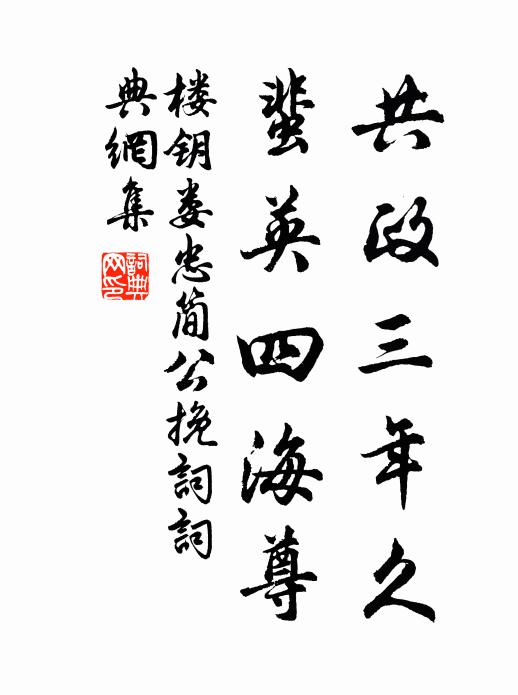 共政三年久
蜚英四海尊
楼钥娄忠简公挽詞詞
典網集
詞典网印